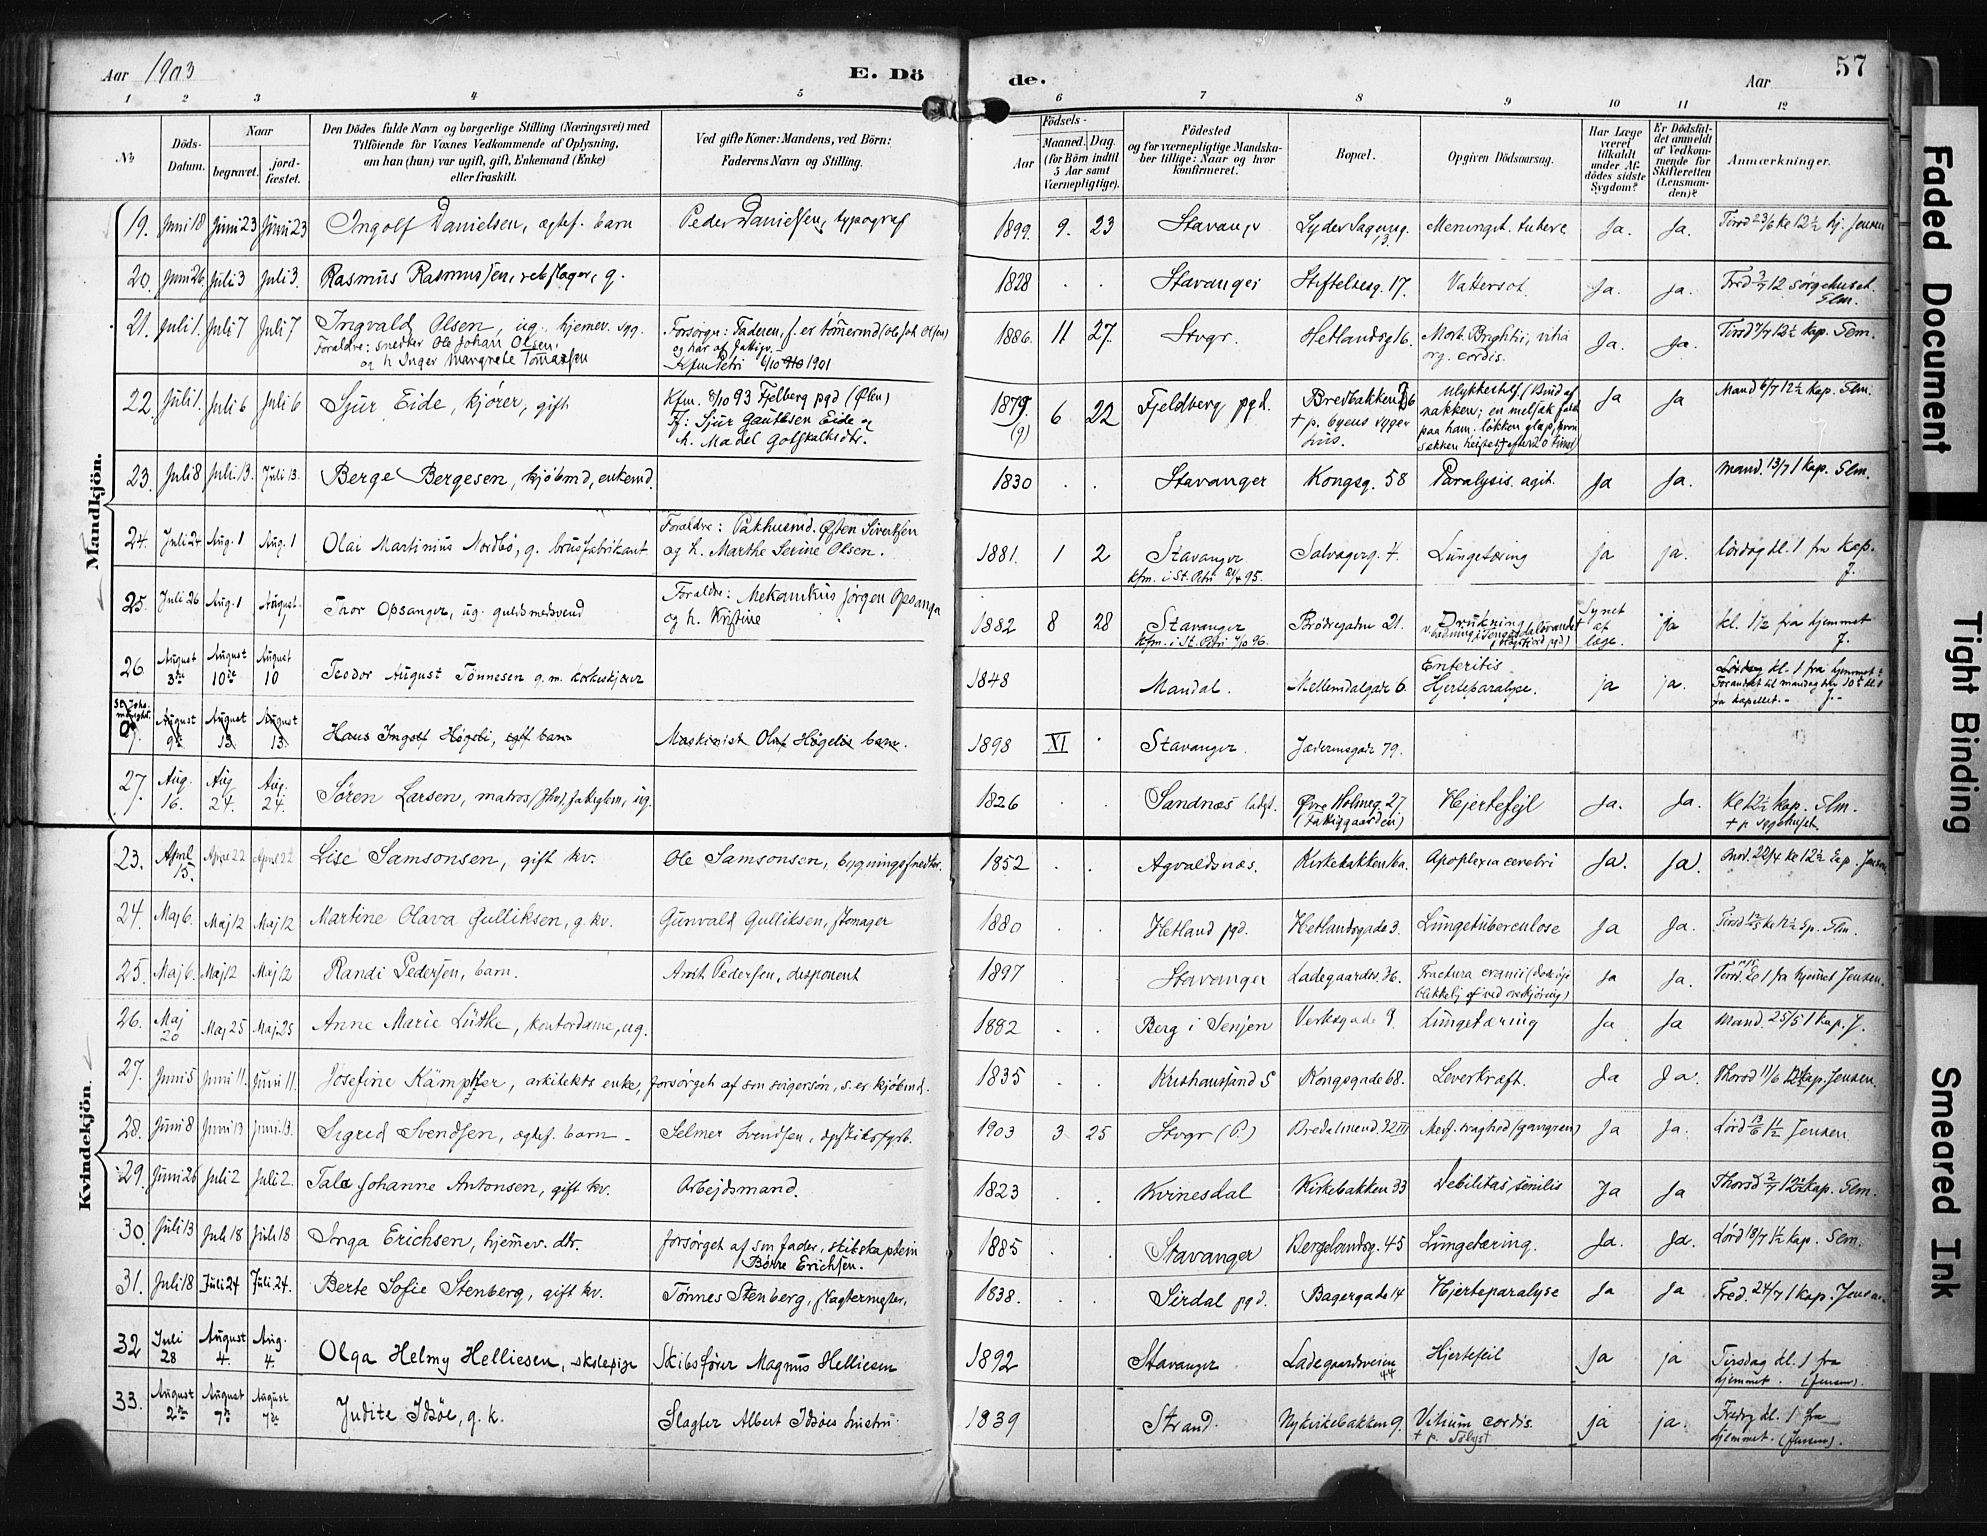 Aar 1903
E. Dö
de.
Aar
57
1 2 3 4 5 6 7 8 9 10 11 12
No
Döds-Datum.
Naar
begravet.
jord-fæstet.
Den Dödes fulde Navn og borgerlige Stilling (Næringsvei) med
Tilföiende for Voxnes Vedkommende af Oplysning,
om han (hun) var ugift, gift, Enkemand (Enke)
eller fraskilt.
Ved gifte Koner: Mandens, ved Börn:
Faderens Navn og Stilling.
Födsels-
Aar
Maaned. Dag.
(for Börn indtil
5 Aar samt
Værnepligtige).
Födested
og for værnepligtige Mandska-
ber tillige: Naar og hvor
konfirmeret.
Bopæl.
Opgiven Dödsaarsag.
Har Læge
været
tilkaldt
under Af-
dödes sidste
Sygdom?
Er Dödsfal-
det anmeldt
af Vedkom-
mende for
Skifteretten
(Lensman-
den)?
Anmærkninger.
Mandkjön.
19. Juni 18 Juni 23 Juni 23 Ingolf Danielsen, ægtef. barn Peder Danielsen, typograf 1899. 9. 23 Stavanger Lyder Sagensg. 13. Meningit. tuberc Ja. Ja. Tirsd 23/6 kl 12½ hj. Jensen
20. Juni 26. Juli 3 Juli 3. Rasmus Rasmussen, rebslager, g. 1828 . . Stavanger Stiftelsesg. 17. Vattersot. Ja. Ja. Fred 3/7 12 sørgehuset. Slm.
21. Juli 1. Juli 7 Juli 7 Ingvald Olsen, ug. hjemev. syg.
Foraldre: snedker Ole Johan Olsen,
og h Inger Margrete Tomassen
Forsørgn: Faderen, f. er tömermd (Ole Joh. Olsen)
1901
1886. 11 27. Stvgr. Hetlandsg 16. Morb. Brightii, vitia
org. cordis. Ja. Ja. Tirsd 7/7 12½ kap. Slm.
22. Juli 1. Juli 6 Juli 6 Sjur Eide, kjører, gift Kfm. 8/10 93 Fjelberg pgd (Ølen)
Ff: Sjur Gautesen Eide og
h.
1879. (9) 6 22 Fjeldberg pgd. Bredbakken
+ p. byens syge-
hus.
Ulykkestilf / Brud af
nakken; en melsæk faldt
paa ham.
Ja Ja Mand 6/7 12½ kap. Slm.
23. Juli 8 Juli 13. Juli 13 Berge Bergesen, kjøbmd, enkemd. 1830 . . Stavanger Kongsg. 58 Paralysis. agit. Ja Ja. Mand. 13/7 1 kap. Slm.
24. Juli 24 Aug. 1 Aug. 1 Olai Martinius Nordbö, g. brusfabrikant Foraldre: Pakhusmd. Østen Sivertsen
og h. Marthe Serine Olsen. 1881. 1 2 Stavanger
kfm. i St. Petri 21/4 95. Salvagerg. 4. Lungetæring ja ja. lördag kl. 1 fra Kap. J.
25. Juli 26 Aug. 1 August Thor Opsanger, ug. guldsmedsvend Foraldre: Mekanikus Jørgen Opsanger
og h. Kristine 1882 8 28 Stavanger
kfm. i St. Petri 4/10 96. Brödregaden 21. Drukning
Synet
af
læge. ja kl. 1½ fra hjemmet J.
26. August 3die August 10de August 10 Teodor August Tönnesen g. m. korkeskjærer 1848 Mandal. Mellemdalgade 6. Enteritis.
Hjerteparalyse. ja ja. Lördag kl. 1 fra hjemmet
Forandret til mandag den 10de kl. 1
fra kapellet. J.
9. August 9de August 13. August 13. Hans Ingolf Høgeli, egt barn Maskinist Oluf Høgelis barn. 1898 XI . Stavanger. Jædermsgade 79.
27. Aug. 16. Aug. 24. Aug. 24. Sören Larsen, matros, fattiglem, ug. 1826 . . Sandnæs ladst. Øvre Holmeg. 27
(Fattiggaarden) Hjertefejl Ja. Ja. kl 12½ kap. Slm.
+ p. sygehuset
Kvindekjön.
23. April 15. April 22 April 22 Lise Samsonsen, gift kv. Ole Samsonsen, bygningssnedker. 1852 . . Agvaldsnæs. Kirkebakken 16a. Apoplexia cerebri Ja. Ja. Onsd. 22/4 kl 12½ kap. Jensen
24. Maj 6. Maj 12 Maj 12 Martine Olava Gulliksen, g. kv. Gunvald Gulliksen, stenager 1880 . . Hetland pgd. Hetlandsgade 3. Lungetuberculose Ja Ja. Tirsd 12/5 kl 12½ Sp. Slm.
25. Maj 6. Maj 12 Maj 12 Randi Pedersen, barn. Arnt Pedersen, disponent 1897 . . Stavanger Ladegaardsv. 36. Fractura cranii (döde øje-
blikkelig af ved overkjöring) Ja Ja. Tirsd. kl 1 fra hjemmet Jensen.
26. Maj 20 Maj 25 Maj 25 Anne Marie Lütke, kontordame, ug. 1882 . . Berg i Senjen Verksgade 9. Lungetæring Ja Ja Mand. 25/5 1 kap. J.
27. Juni 5 Juni 11. Juni 11. Josefine Kämpffer, arkitekts enke, forsørget af sin svigersøn, s. er kjøbmd. 1835 . . Kristiansand S Kongsgade 68. Leverkræft. Ja Ja. Thorsd 11/6 12½ kap. Jensen.
28. Juni 8 Juni 13 Juni 13. Sigrid Svendsen, ægtef. barn Selmer Svendsen, 1903 3 25 Stvgr (P.) Bredalmend. 22 III Medf. svaghed (gangræn) Ja Ja. Lörd 13/6 1½ Jensen.
29. Juni 26 Juli 2 Juli 2. Tale Johanne Antonsen, gift kv. Arbejdsmand. 1823 . . Kvinesdal Kirkebakken 33 Debilitas senilis Ja Ja Thorsd 2/7 12½ kap. Slm.
30. Juli 13 Juli 18 Juli 18 Inga Erichsen, hjemev. dtr. forsörget af sin fader, skibskaptein
Börre Erichsen. 1885 . . Stavanger Bergelandsg. 45 Lungetæring. Ja. Ja. Lörd 18/7 1½ kap. Slm.
31. Juli 18 Juli 24 Juli 24. Berte Sofie Stenberg, gift kv. Tönnes Stenberg, slagtermester. 1838. . . Sirdal pgd. Bagergade 14 Hjerteparalyse Ja Ja Fred. 24/7 1 kap. Jensen.
32 Juli 28 August 4. Aug. 4. Olga Helmy Helliesen, skolepige Skibsförer Magnus Helliesen 1892 Stavanger Ladegaardsveien 44 Hjertefeil Ja ja Tirsdag kl. 1 fra
hjemmet. (Jensen).
33. August 2den August 7de August 7de Judite Idsöe, g. k. Slagter Albert Idsöes hustru. 1839 Strand. Nykirkebakken 9. Vitium cordis.
+ p. Sölyst ja ja. Fredag kl. 1 fra
hjemmet. (Jensen).
Faded Document
Tight Binding
Smeared Ink